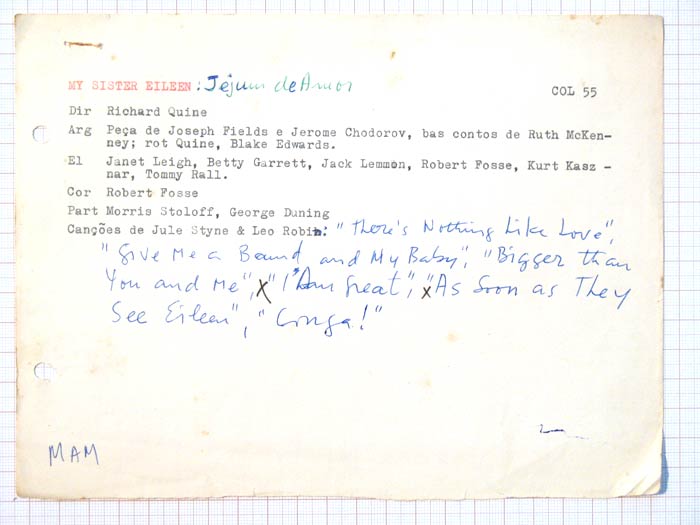 MY SISTER EILEEN: Jejum de Amor COL 55
Dir Richard Quine
Arg Peça de Joseph Fields e Jerome Chodorov, bas contos de Ruth McKen-
ney; rot Quine, Blake Edwards.
El Janet Leigh, Betty Garrett, Jack Lemmon, Robert Fosse, Kurt Kasz -
nar, Tommy Rall.
Cor Robert Fosse
Part Morris Stoloff, George Duning
Canções de Jule Styne & Leo Robin: "There's Nothing Like Love",
"Give Me a Band and My Baby", "Bigger than
You and Me", x "I'm Great", x "As Soon as They
See Eileen", "Conga!"
MAM